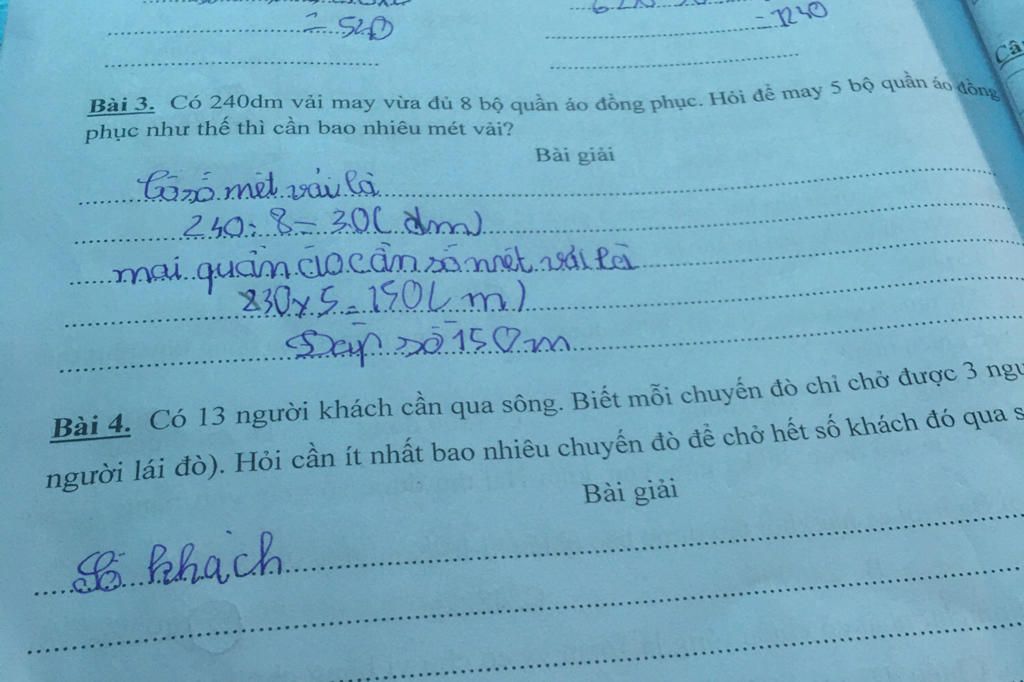 = 540
= 1240
Bài 3. Có 240dm vải may vừa đủ 8 bộ quần áo đồng phục. Hỏi để may 5 bộ quần áo đồng
phục như thế thì cần bao nhiêu mét vải?
Bài giải
Có số mét vải là
240 : 8 = 30 ( dm )
mai quần áo cần số mét vải là
30 x 5 = 150 ( m )
Đáp số 150 m
Bài 4. Có 13 người khách cần qua sông. Biết mỗi chuyến đò chỉ chở được 3
người lái đò). Hỏi cần ít nhất bao nhiêu chuyến đò để chở hết số khách đó qua
Bài giải
Số khách